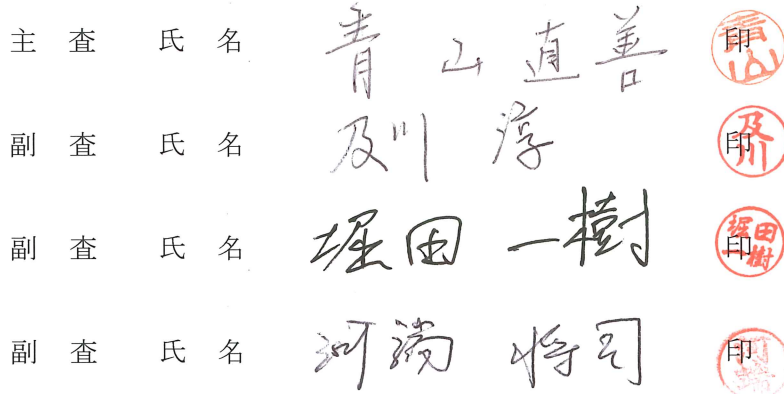 主査 氏名 青山直善 印
副査 氏名 及川 淳 印
副査 氏名 堀田 一樹 印
副査 氏名 河端 将司 印